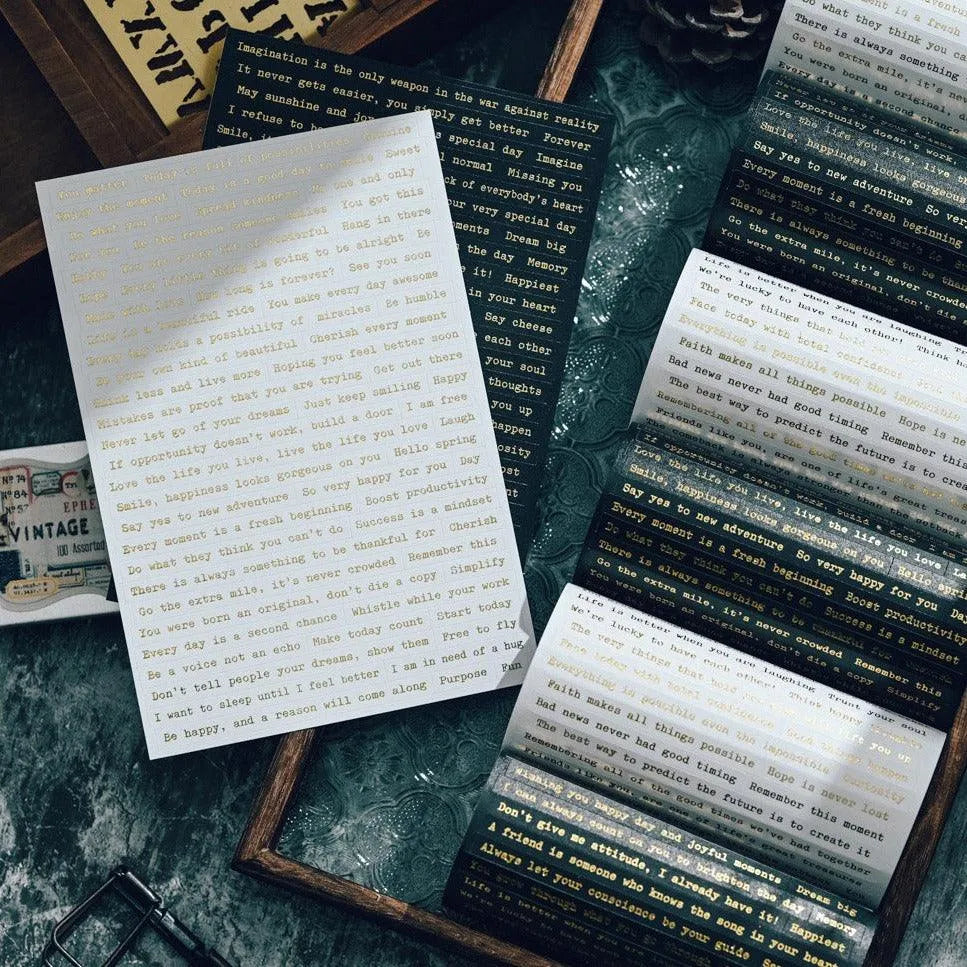 Imagination is the only weapon in the war against reality
It never gets easier, you simply get better Forever
May sunshine and joy
special day Imagine
I refuse to be
normal Missing you
Smile, it
of everybody's heart
your very special day
Dream big
the day Memory
it! Happiest
in your heart
Say cheese
each other
your soul
thoughts
you up
happen
You matter Today is full of possibilities Genuine
Enjoy the moment Today is a good day to smile Sweet
Do what you love Spread kindness one and only
Be the reason someone smiles You got this
wonderful Hang in there
thing is going to be alright Be
long is forever? See you soon
Life is a beautiful ride You make every day awesome
Every day holds a possibility of miracles Be humble
Be your own kind of beautiful Cherish every moment
Think less and live more Hoping you feel better soon
Mistakes are proof that you are trying Get out there
Never let go of your dreams Just keep smiling Happy
If opportunity doesn't work, build a door I am free
Love the life you live, live the life you love Laugh
Smile, happiness looks gorgeous on you Hello spring
Say yes to new adventure So very happy for you Day
Every moment is a fresh beginning Boost productivity
Do what they think you can't do Success is a mindset
There is always something to be thankful for Cherish
Go the extra mile, it's never crowded Remember this
You were born an original, don't die a copy Simplify
Every day is a second chance Whistle while your work
Be a voice not an echo Make today count Start today
Don't tell people your dreams, show them Free to fly
I want to sleep until I feel better I am in need of a hug
Be happy, and a reason will come along Purpose Fun
Nº 74
Nº 84
Nº 57
EPHE
VINTAGE
100 Assorted
ment is a fresh
Do what they think you can
There is always something
Go the extra mile, it's never
You were born an original,
Every day is a second chance
If opportunity doesn't work,
Love the life you live, live th
Smile, happiness looks gorgeous
Say yes to new adventure So ver
Every moment is a fresh beginning
Do what they think you can't do
There is always something to be than
Go the extra mile, it's never crowded
You were born an original, don't die
Life is better when you are laughing
We're lucky to have each other! Think
The very things that hold
Face today with total confidence
Everything is possible even the impossible
Faith makes all things possible Hope is ne
Bad news never had good timing Remember this
The best way to predict the future is to crea
Remembering all of the good times
Friends like you, are one of life's great treas
The comeback is always stronger than the setback
If opportunity doesn't work, build a door I am
Love the life you live, live the life you love La
Smile, happiness looks gorgeous on you Hello spri
Say yes to new adventure So very happy for you Day
Every moment is a fresh beginning Boost productivity
Do what they think you can't do Success is a mindset
There is always something to be thankful for
Go the extra mile, it's never crowded Remember this
You were born an original, don't die a copy Simplify
Life is better when you are laughing Trust your soul
We're lucky to have each other! Think happy
The very things that hold you down lift you up
Face today with total confidence happen
Everything is possible even the impossible Curiosity
Faith makes all things possible Hope is never lost
Bad news never had good timing Remember this moment
The best way to predict the future is to create it
Remembering all of the good times we've had together
Friends like you, are one of life's great treasures
Wishing you happy day and joyful moments Dream big
I can always count on you to brighten the day Memory
Don't give me attitude, I already have it! Happiest
A friend is someone who knows the song in your heart
Always let your conscience be your guide Say
You grow through what you go through
Life is better when you are
We're lucky